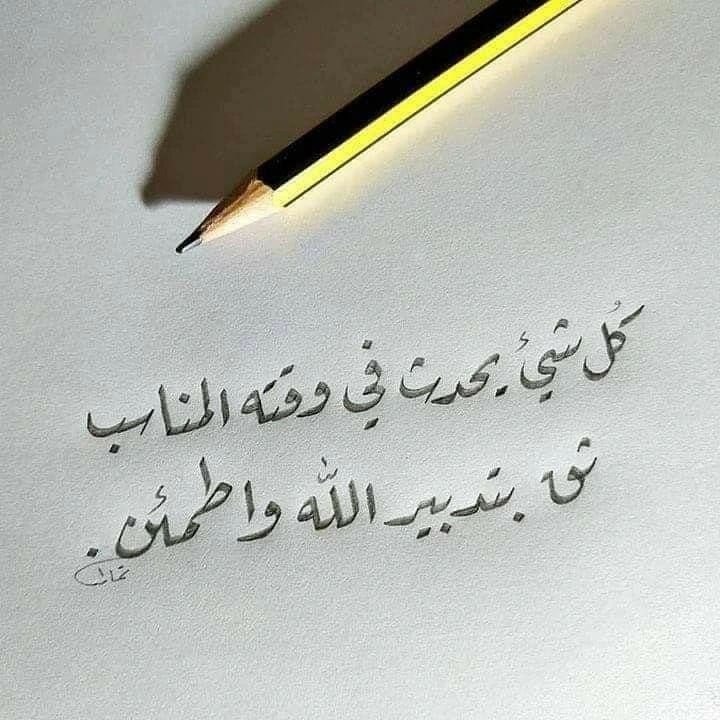 كُل شيئ يحدث في وقته المناسب
ثق بتدبير الله واطمئن.